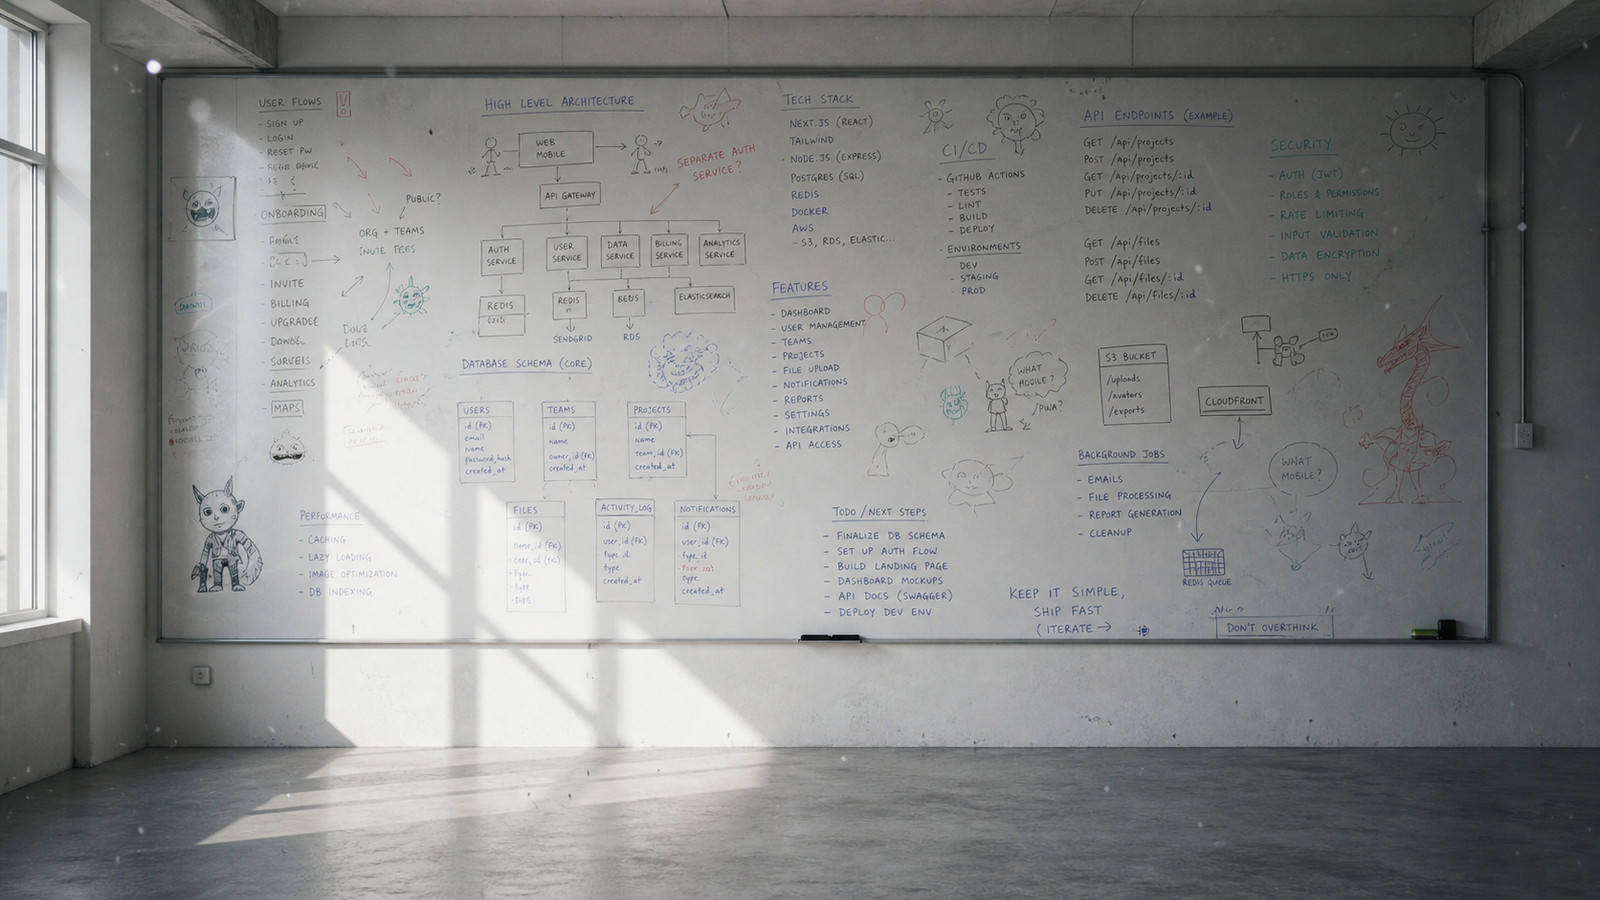 USER FLOWS
- SIGN UP
- LOGIN
- RESET PW
- ONBOARDING
- INVITE
- BILLING
- ANALYTICS
- MAPS
PUBLIC?
ORG + TEAMS
PERFORMANCE
- CACHING
- LAZY LOADING
- IMAGE OPTIMIZATION
- DB INDEXING
HIGH LEVEL ARCHITECTURE
WEB
MOBILE
SEPARATE AUTH
SERVICE?
API GATEWAY
AUTH
SERVICE
USER
SERVICE
DATA
SERVICE
BILLING
SERVICE
ANALYTICS
SERVICE
REDIS
REDIS
ELASTICSEARCH
SENDGRID
RDS
DATABASE SCHEMA (CORE)
USERS
id (PK)
email
name
password_hash
created_at
TEAMS
id (PK)
name
owner_id (FK)
created_at
PROJECTS
id (PK)
name
team_id (FK)
created_at
FILES
id (PK)
ACTIVITY_LOG
id (PK)
user_id (FK)
type
created_at
NOTIFICATIONS
id (PK)
user_id (FK)
type
created_at
TECH STACK
NEXT.JS (REACT)
TAILWIND
NODE.JS (EXPRESS)
POSTGRES (SQL)
REDIS
DOCKER
AWS
- S3, RDS, ELASTIC...
FEATURES
- DASHBOARD
- USER MANAGEMENT
- TEAMS
- PROJECTS
- FILE UPLOAD
- NOTIFICATIONS
- REPORTS
- SETTINGS
- INTEGRATIONS
- API ACCESS
TODO / NEXT STEPS
- FINALIZE DB SCHEMA
- SET UP AUTH FLOW
- BUILD LANDING PAGE
- DASHBOARD MOCKUPS
- API DOCS (SWAGGER)
- DEPLOY DEV ENV
CI/CD
- GITHUB ACTIONS
- TESTS
- LINT
- BUILD
- DEPLOY
- ENVIRONMENTS
DEV
- STAGING
- PROD
WHAT
MOBILE?
KEEP IT SIMPLE,
SHIP FAST
( ITERATE →
API ENDPOINTS (EXAMPLE)
GET /api/projects
POST /api/projects
GET /api/projects/:id
PUT /api/projects/:id
DELETE /api/projects/:id
GET /api/files
POST /api/files
GET /api/files/:id
DELETE /api/files/:id
S3 BUCKET
/uploads
/avatars
/exports
CLOUDFRONT
BACKGROUND JOBS
- EMAILS
- FILE PROCESSING
- REPORT GENERATION
- CLEANUP
WHAT
MOBILE?
REDIS QUEUE
DON'T OVERTHINK
SECURITY
- AUTH (JWT)
- ROLES & PERMISSIONS
- RATE LIMITING
- INPUT VALIDATION
- DATA ENCRYPTION
- HTTPS ONLY